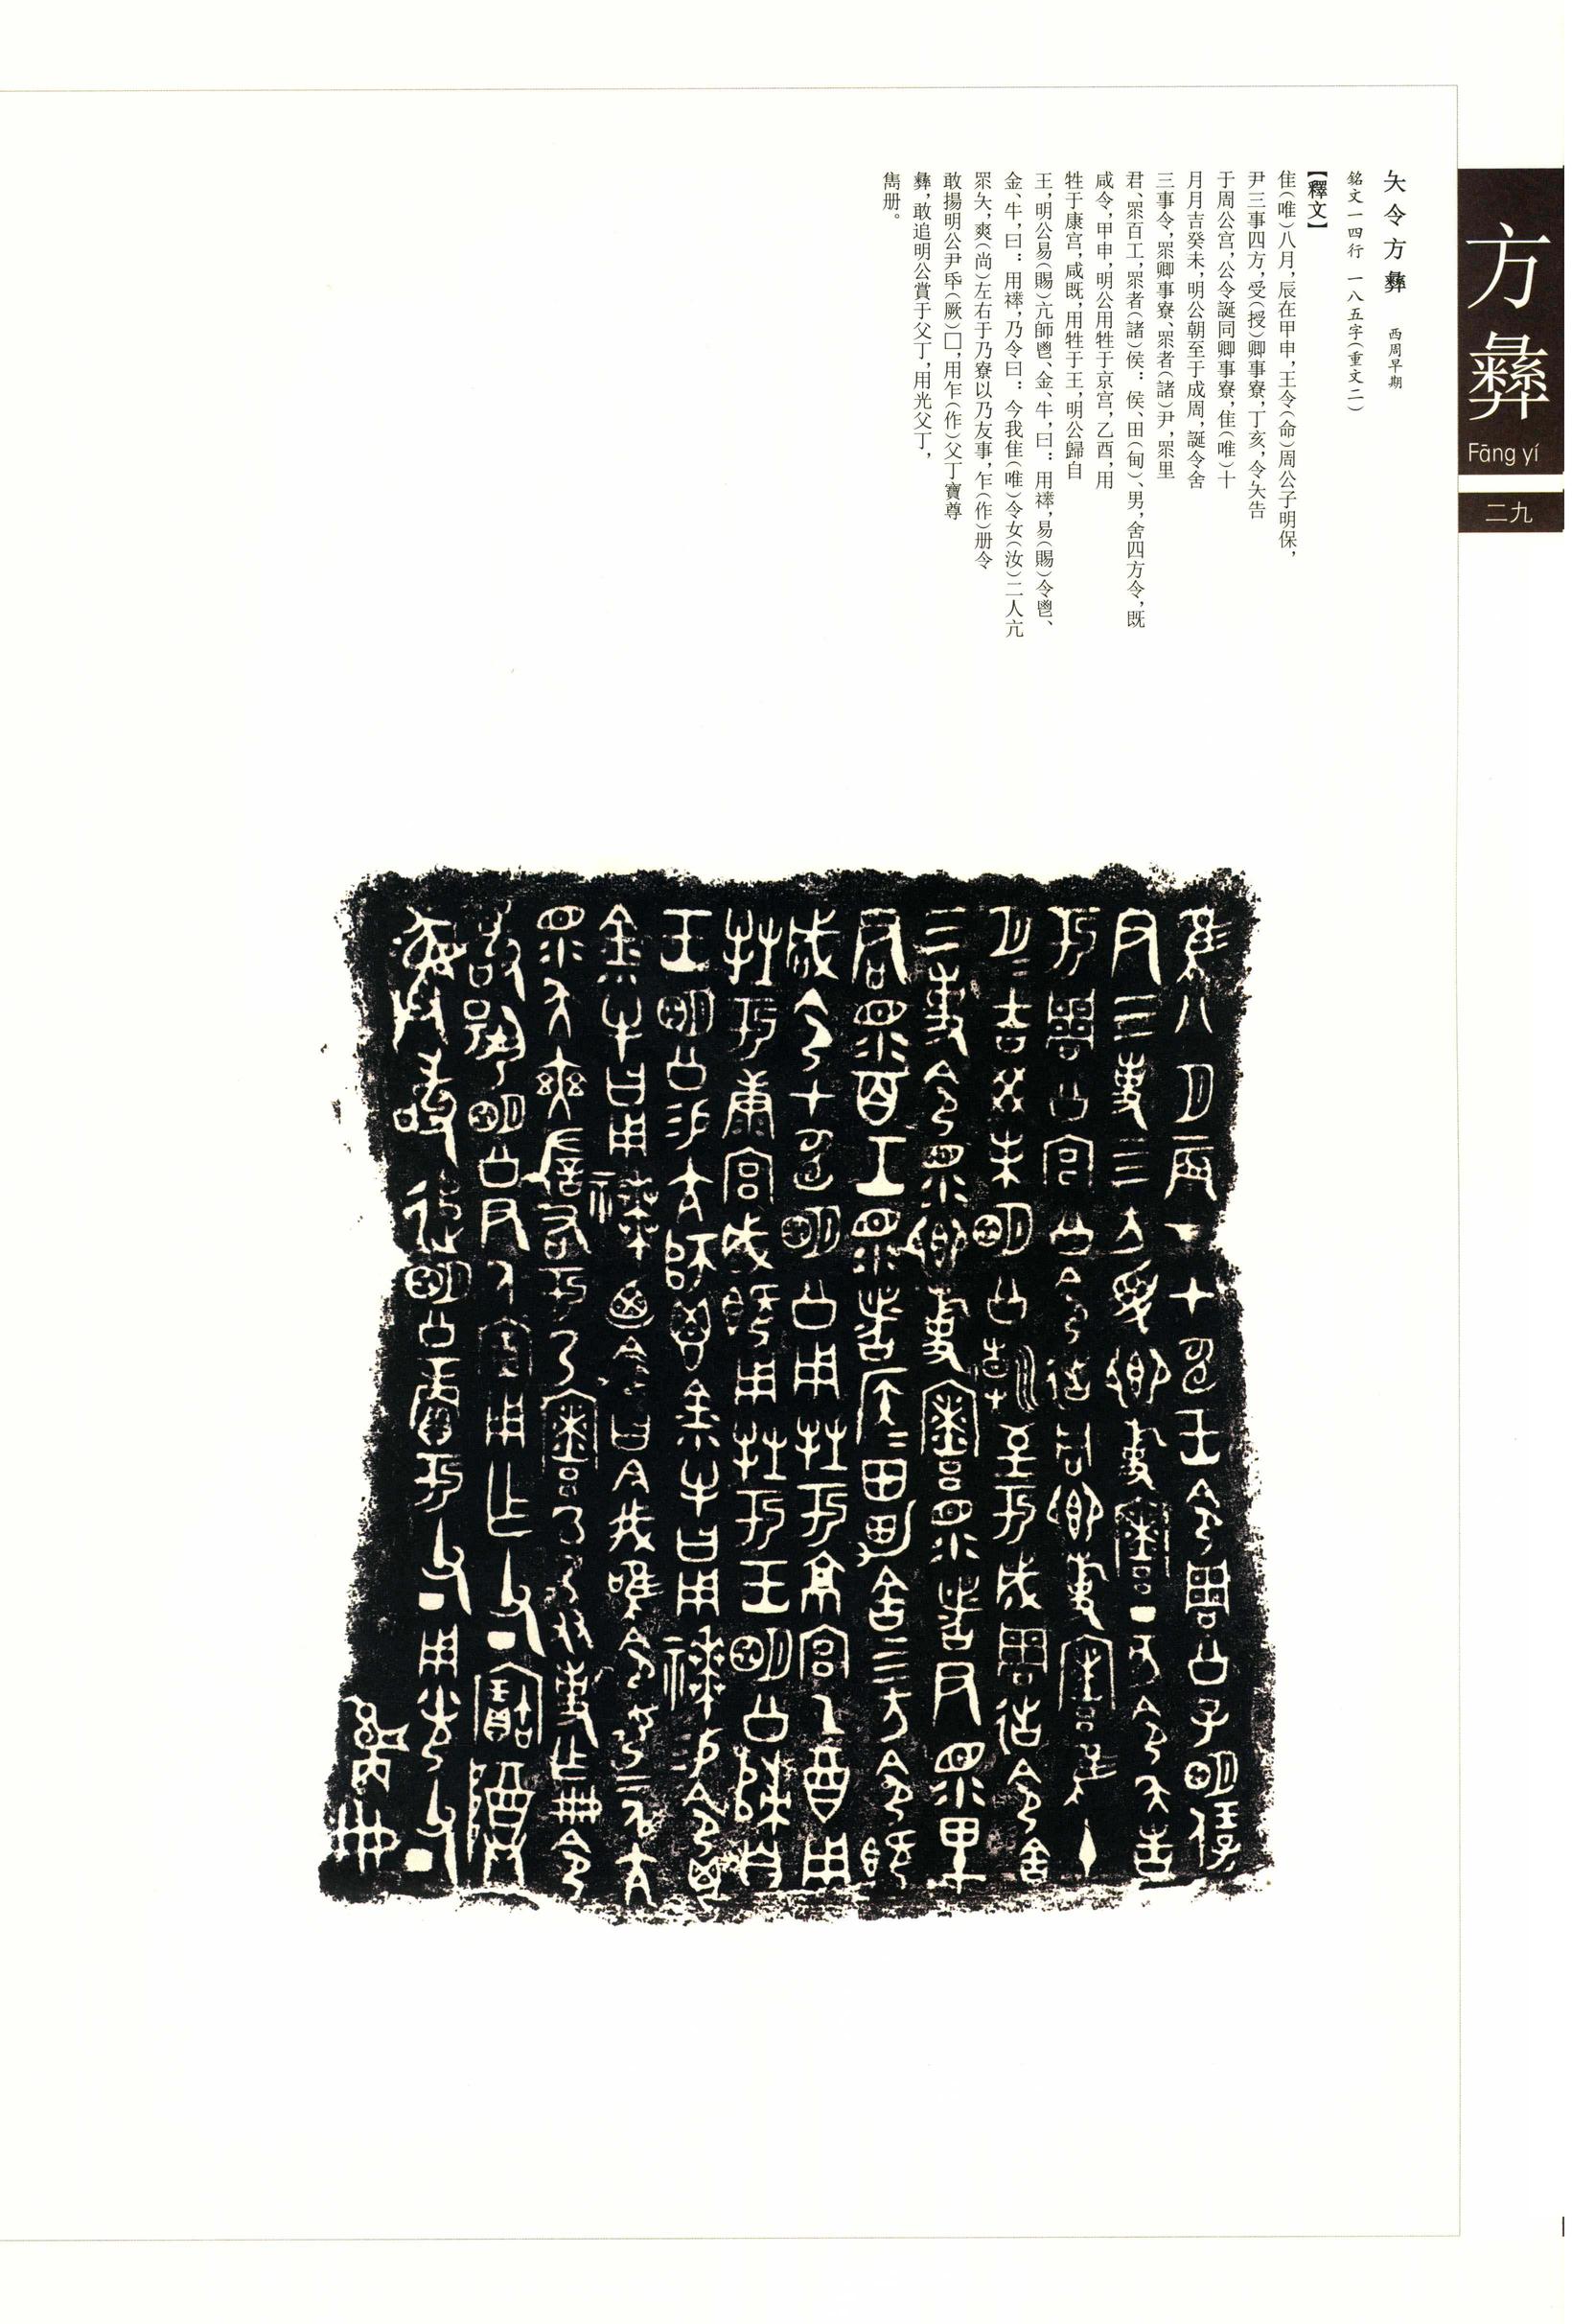 方彝
Fāng yí
二九
夨令方彝 西周早期
銘文一四行 一八五字(重文二)
【釋文】
隹(唯)八月,辰在甲申,王令(命)周公子明保,
尹三事四方,受(授)卿事寮,丁亥,令夨告
于周公宫,公令誕同卿事寮,隹(唯)十
月月吉癸未,明公朝至于成周,誕令舍
三事令,眔卿事寮、眔者(諸)尹,眔里
君、眔百工,眔者(諸)侯:侯、田(甸)、男,舍四方令,既
咸令,甲申,明公用牲于京宫,乙酉,用
牲于康宫,咸既,用牲于王,明公歸自
王,明公易(賜)亢師鬯、金、牛,曰:用禱,易(賜)令鬯、
金、牛,曰:用禱,乃令曰:今我隹(唯)令女(汝)二人亢
眔夨,爽(尚)左右于乃寮以乃友事,乍(作)册令
敢揚明公尹氒(厥)□,用乍(作)父丁寶尊
彝,敢追明公賞于父丁,用光父丁,
雋册。